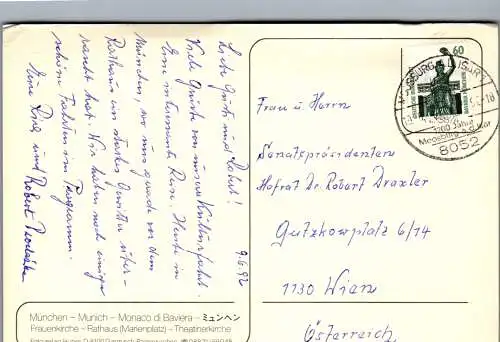 9.6.92
Liebe Gusti und Robert!
Viele Grüße von unserer Kulturfahrt.
Eine interessante Reise. Heute in
München, wo uns gerade vor dem
Rathaus ein starkes Gewitter über-
rascht hat. Wir haben noch einige
schöne Fahrten im Programm.
Eure und Robert
München – Munich – Monaco di Baviera – ミュンヘン
Frauenkirche – Rathaus (Marienplatz) – Theatinerkirche
60
MOOSBURG A D ISAR 1
8052
Frau u. Herrn
Senatspräsidenten
Hofrat Dr. Robert Draxler
Gutzkowplatz 6/14
1130 Wien
Österreich